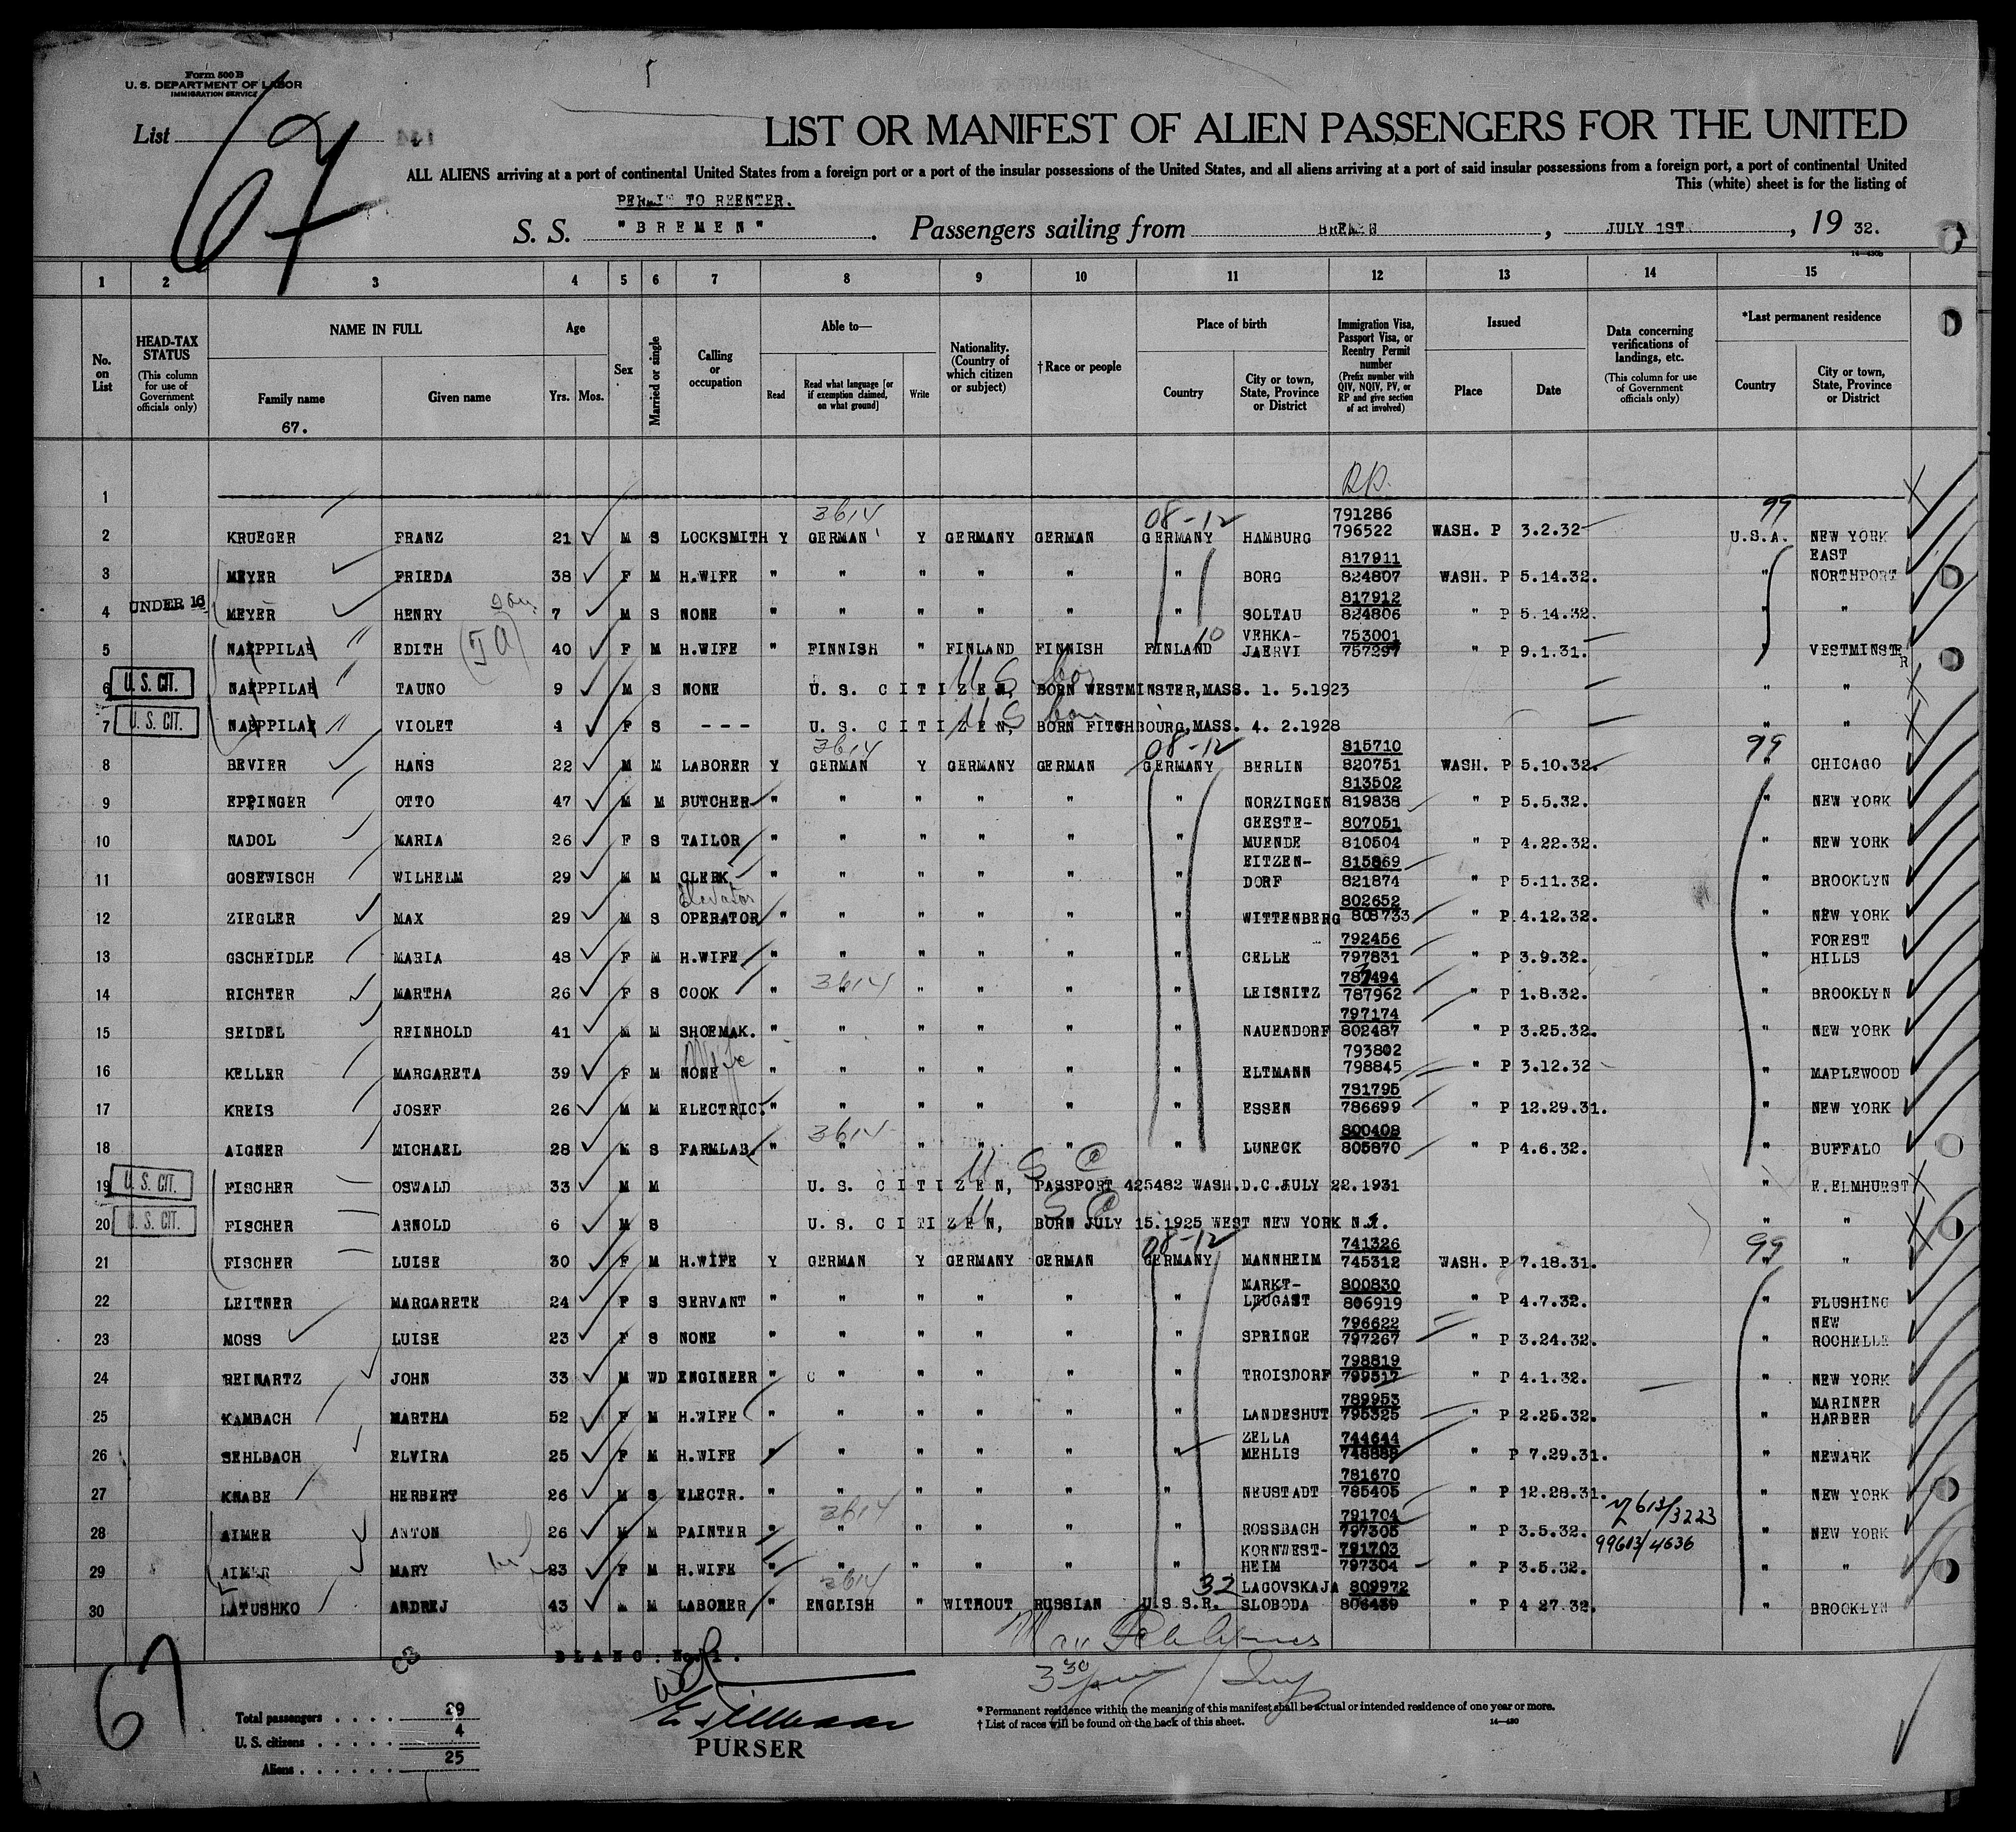 Form 500 B
U. S. DEPARTMENT OF LABOR
IMMIGRATION SERVICE
List 67
LIST OR MANIFEST OF ALIEN PASSENGERS FOR THE UNITED
ALL ALIENS arriving at a port of continental United States from a foreign port or a port of the insular possessions of the United States, and all aliens arriving at a port of said insular possessions from a foreign port, a port of continental United
This (white) sheet is for the listing of
PERMIT TO REENTER.
S. S. "BREMEN". Passengers sailing from BREMEN, JULY 1ST, 19 32.
14—430b
1 2 3 4 5 6 7 8 9 10 11 12 13 14 15
No. on List
HEAD-TAX STATUS (This column for use of Government officials only)
NAME IN FULL Family name Given name
67.
Age Yrs. Mos.
Sex
Married or single
Calling or occupation
Able to— Read Read what language [or if exemption claimed, on what ground] Write
Nationality. (Country of which citizen or subject)
†Race or people
Place of birth Country City or town, State, Province or District
Immigration Visa, Passport Visa, or Reentry Permit number (Prefix number with QIV, NQIV, PV, or RP and give section of act involved)
Issued Place Date
Data concerning verifications of landings, etc. (This column for use of Government officials only)
*Last permanent residence Country City or town, State, Province or District
1
3614 08-12 791286 99
2 KRUEGER FRANZ 21 M S LOCKSMITH Y GERMAN Y GERMANY GERMAN GERMANY HAMBURG 796522 WASH. P 3.2.32 U.S.A. NEW YORK
817911 EAST
3 MEYER FRIEDA 38 F M H.WIFE " " " " " " BORG 824807 WASH. P 5.14.32. " NORTHPORT
817912
4 UNDER 16 MEYER HENRY 7 M S NONE " " " " " " SOLTAU 824806 " P 5.14.32. " "
VEHKA- 753001
5 EDITH 40 F M H.WIFE " FINNISH " FINLAND FINNISH FINLAND 10 JAERVI 757297 " P 9.1.31. VESTMINSTER
6 U. S. CIT. TAUNO 9 M S NONE U. S. CITIZEN, BORN WESTMINSTER,MASS. 1. 5.1923 " "
7 U. S. CIT. VIOLET 4 F S --- U. S. CITIZEN, BORN FITCHBOURG,MASS. 4. 2.1928 " "
3614 08-12 815710 99
8 BEVIER HANS 22 M M LABORER Y GERMAN Y GERMANY GERMAN GERMANY BERLIN 820751 WASH. P 5.10.32. " CHICAGO
813502
9 EPPINGER OTTO 47 M M BUTCHER " " " " " " NORZINGEN 819838 " P 5.5.32. " NEW YORK
GEESTE- 807051
10 NADOL MARIA 26 F S TAILOR " " " " " " MUENDE 810504 " P 4.22.32. " NEW YORK
EITZEN- 815869
11 GOSEWISCH WILHELM 29 M M CLERK " " " " " " DORF 821874 " P 5.11.32. " BROOKLYN
Elevator 802652
12 ZIEGLER MAX 29 M S OPERATOR " " " " " " WITTENBERG 808733 " P 4.12.32. " NEW YORK
792456 FOREST
13 GSCHEIDLE MARIA 48 F M H.WIFE " " " " " " CELLE 797831 " P 3.9.32. " HILLS
3614
14 RICHTER MARTHA 26 F S COOK " " " " " " LEISNITZ 787962 " P 1.8.32. " BROOKLYN
797174
15 SEIDEL REINHOLD 41 M M SHOEMAK. " " " " " " NAUENDORF 802487 " P 3.25.32. " NEW YORK
Wife 793802
16 KELLER MARGARETA 39 F M NONE " " " " " " ELTMANN 798845 " P 3.12.32 " MAPLEWOOD
781795
17 KREIS JOSEF 26 M M ELECTRIC. " " " " " " ESSEN 786699 " P 12.29.31. " NEW YORK
3614 800408
18 AIGNER MICHAEL 28 M S FARMLAB. " " " " " " LUNECK 805870 " P 4.6.32. " BUFFALO
19 U. S. CIT. FISCHER OSWALD 33 M M U. S. CITIZEN, PASSPORT 425482 WASH.D.C.JULY 22.1931 " E.ELMHURST
20 U. S. CIT. FISCHER ARNOLD 6 M S U. S. CITIZEN, BORN JULY 15.1925 WEST NEW YORK N.Y. " "
08-12 741326 99
21 FISCHER LUISE 30 F M H.WIFE Y GERMAN Y GERMANY GERMAN GERMANY MANNHEIM 745312 WASH. P 7.18.31. "
MARKT- 800830
22 LEITNER MARGARETE 24 F S SERVANT " " " " " " LEUGAST 806919 " P 4.7.32. " FLUSHING
796622 NEW
23 MOSS LUISE 23 F S NONE " " " " " " SPRINGE 797267 " P 3.24.32. " ROCHELLE
798819
24 REINARTZ JOHN 33 M WD ENGINEER " " " " " " TROISDORF 799517 " P 4.1.32. " NEW YORK
789953 MARINER
25 KAMBACH MARTHA 52 F M H.WIFE " " " " " " LANDESHUT 795325 " P 2.25.32. " HARBER
ZELLA 744644
26 SEHLBACH ELVIRA 25 F M H.WIFE " " " " " " MEHLIS " P 7.29.31. " NEWARK
781670
27 KNABE HERBERT 26 M S ELECTR. " " " " " " NEUSTADT 785405 " P 12.28.31. " NEW YORK
3614 791704
28 AIMER ANTON 26 M M PAINTER " " " " " " ROSSBACH 797305 " P 3.5.32. " NEW YORK
KORNWEST- 791703 99613/4636
29 AIMER MARY 23 F M H.WIFE " " " " " " HEIM 797304 " P 3.5.32. " "
3614 32 LAGOVSKAJA 809972
30 LATUSHKO ANDREJ 43 M M LABORER " ENGLISH " WITHOUT RUSSIAN U.S.S.R. SLOBODA 806439 " P 4 27.32. " BROOKLYN
BLANC: No. 1.
67
PURSER
Total passengers . . . . 29
U. S. citizens . . . . . 4
Aliens . . . . . . 25
* Permanent residence within the meaning of this manifest shall be actual or intended residence of one year or more.
† List of races will be found on the back of this sheet. 14—430